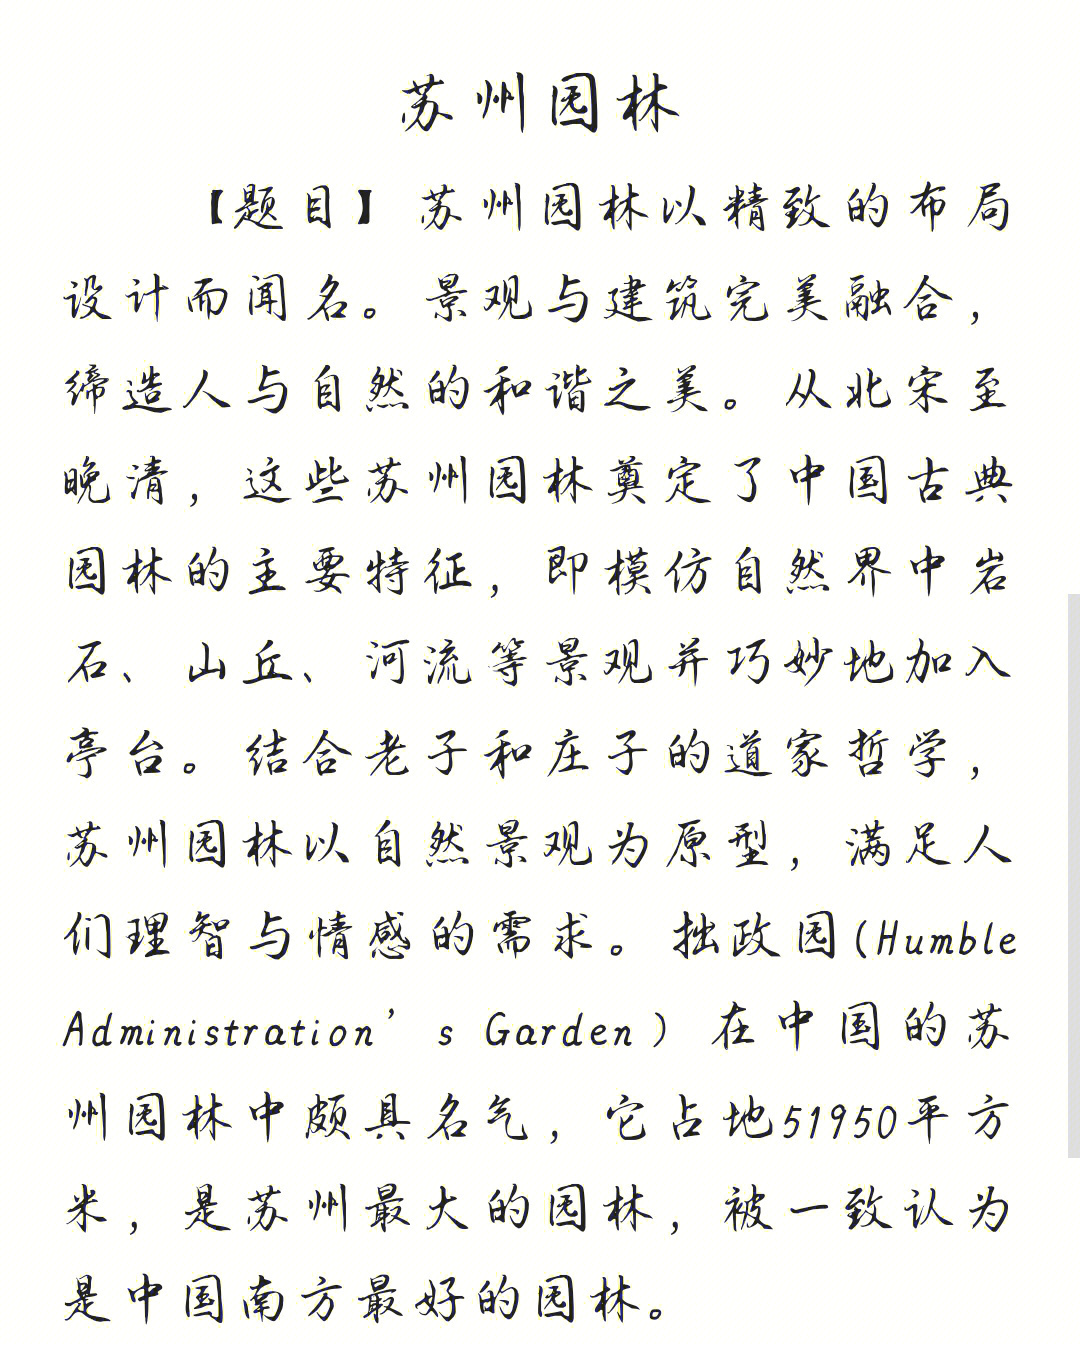 苏州园林
【题目】苏州园林以精致的布局
设计而闻名。景观与建筑完美融合，
缔造人与自然的和谐之美。从北宋至
晚清，这些苏州园林奠定了中国古典
园林的主要特征，即模仿自然界中岩
石、山丘、河流等景观并巧妙地加入
亭台。结合老子和庄子的道家哲学，
苏州园林以自然景观为原型，满足人
们理智与情感的需求。拙政园(Humble
Administration’s Garden）在中国的苏
州园林中颇具名气，它占地51950平方
米，是苏州最大的园林，被一致认为
是中国南方最好的园林。